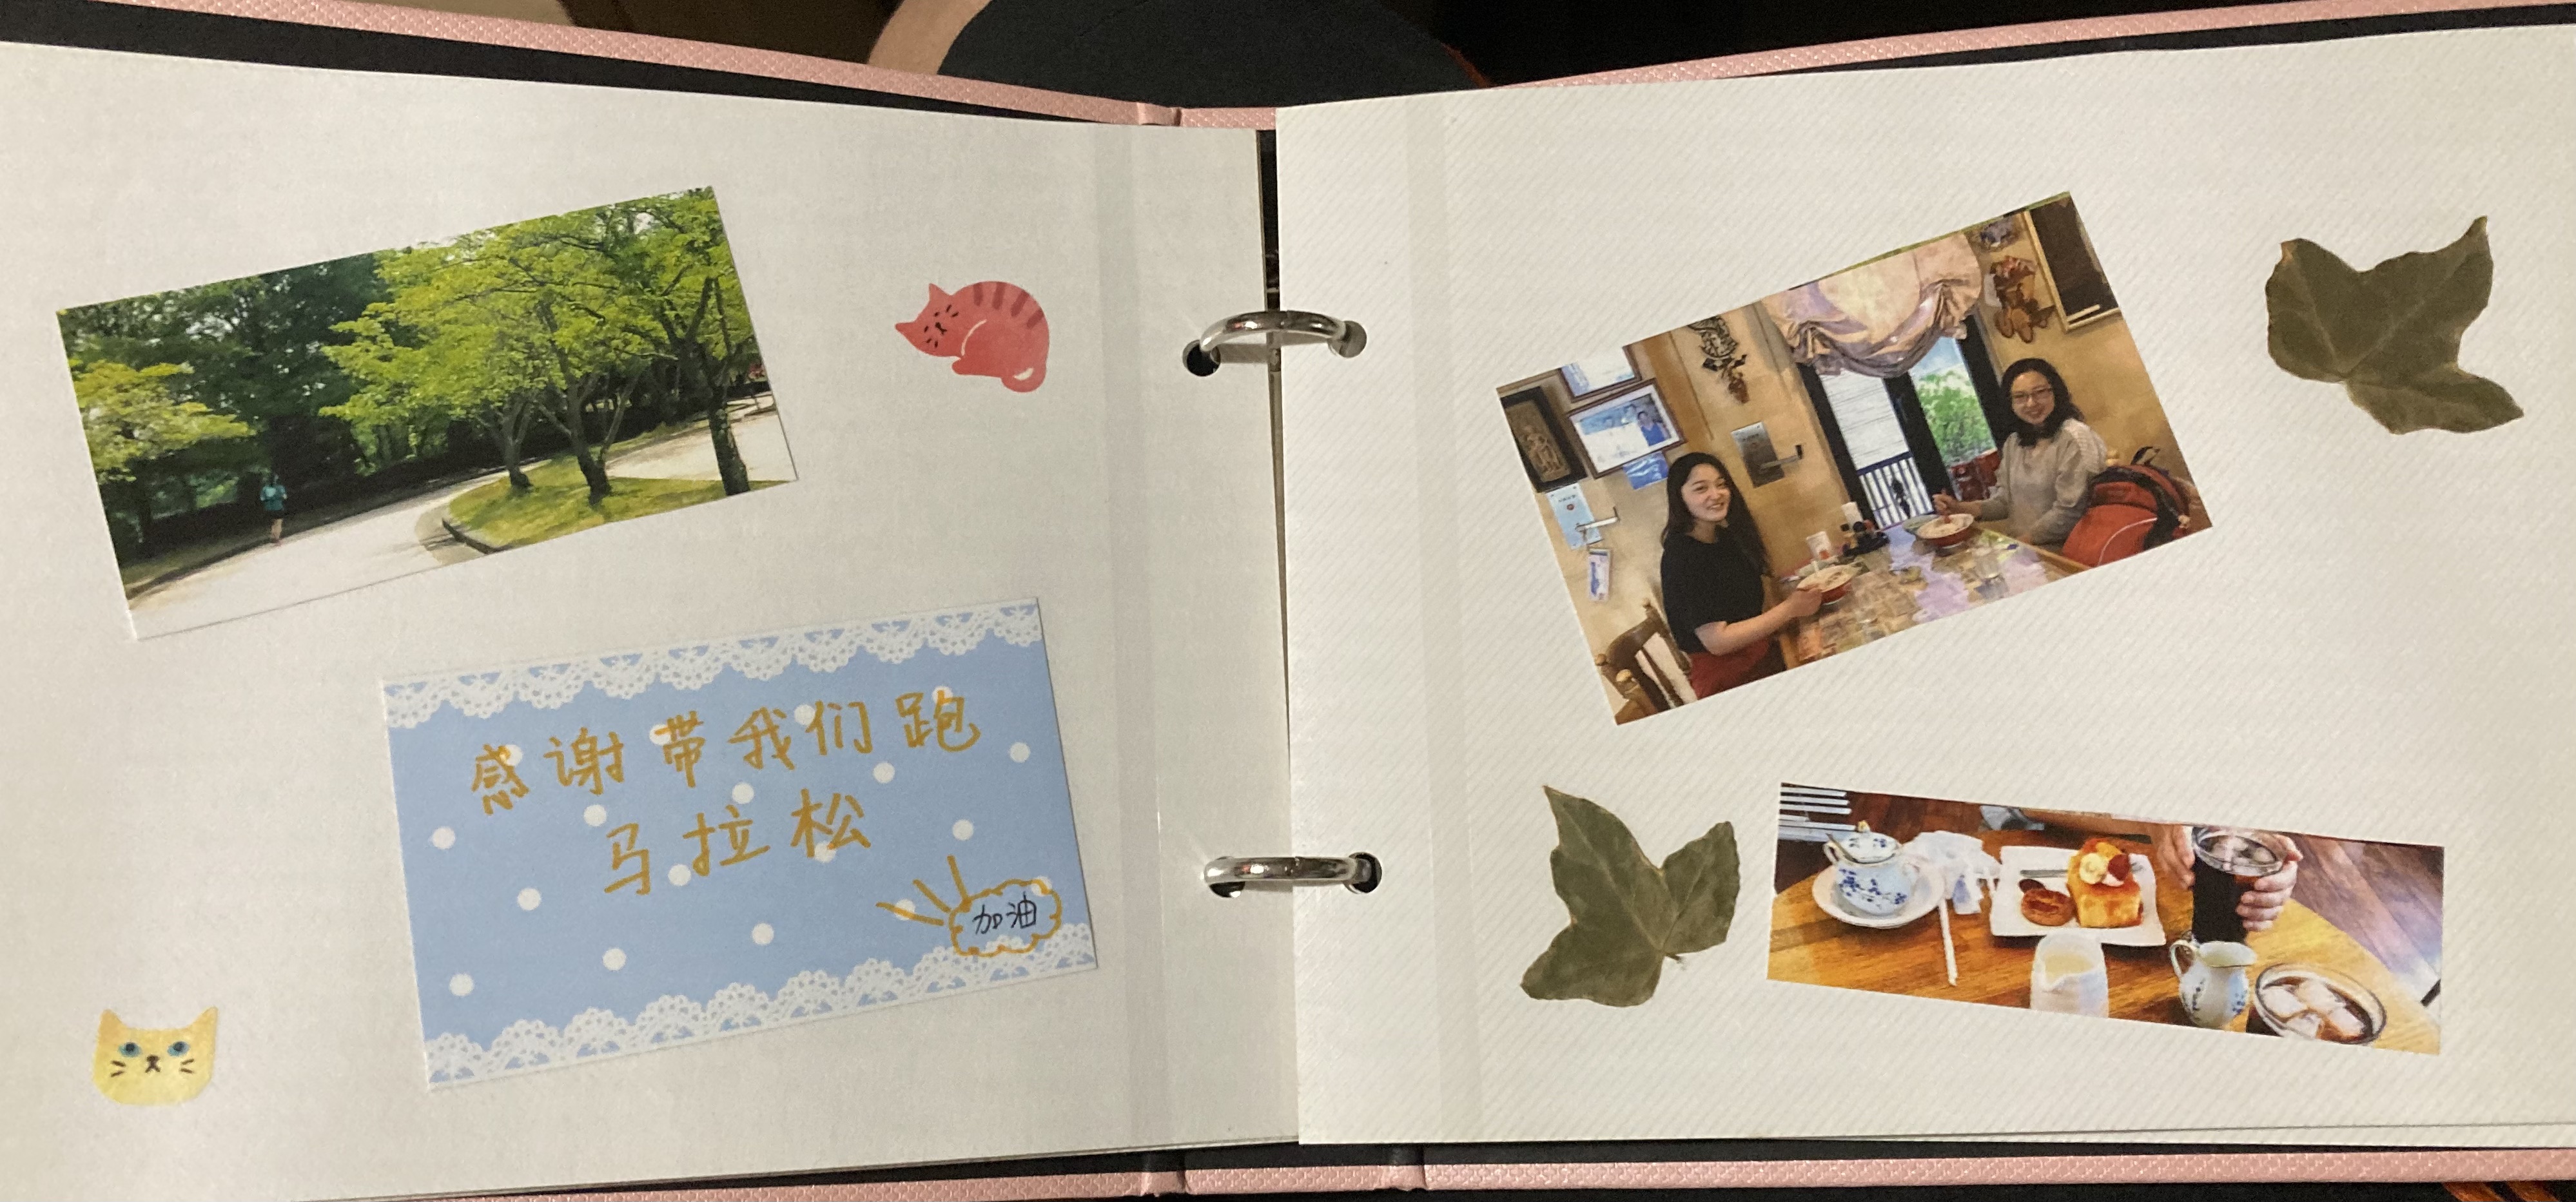 感谢带我们跑
马拉松
加油